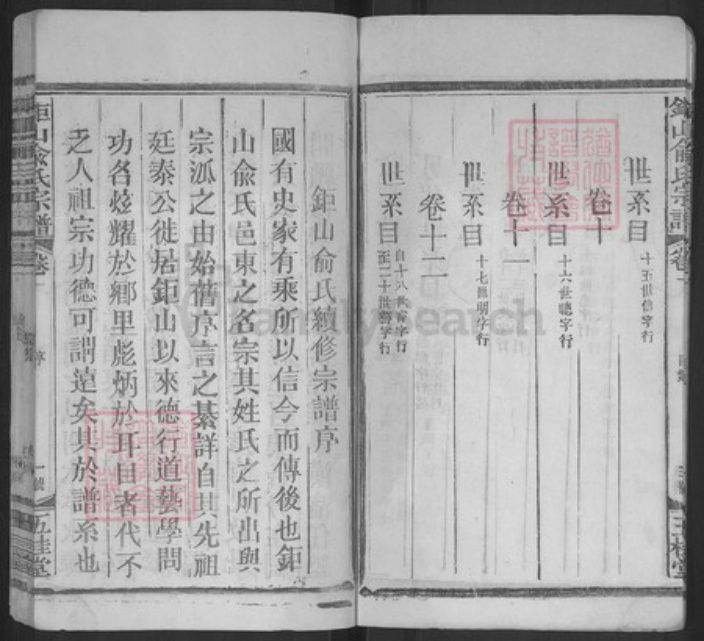 世系目 十五世信字行
卷十
世系目 十六世聰字行
卷十一
世系目 十七世明字行
卷十二
世系目 自十八世睿字行
至二十世字行
鉅山俞氏宗譜 卷一
五桂堂
鉅山俞氏續修宗譜序
國有史家有乘所以信今而傳後也鉅
山俞氏邑東之名宗其姓氏之所出與
宗派之由始舊序言之綦詳自其先祖
廷泰公徙居鉅山以來德行道藝學問
功名炫耀於鄉里彪炳於耳目者代不
乏人祖宗功德可謂遠矣其於譜系也
鉅山俞氏宗譜 卷一 序 一 五桂堂
FamilySearch